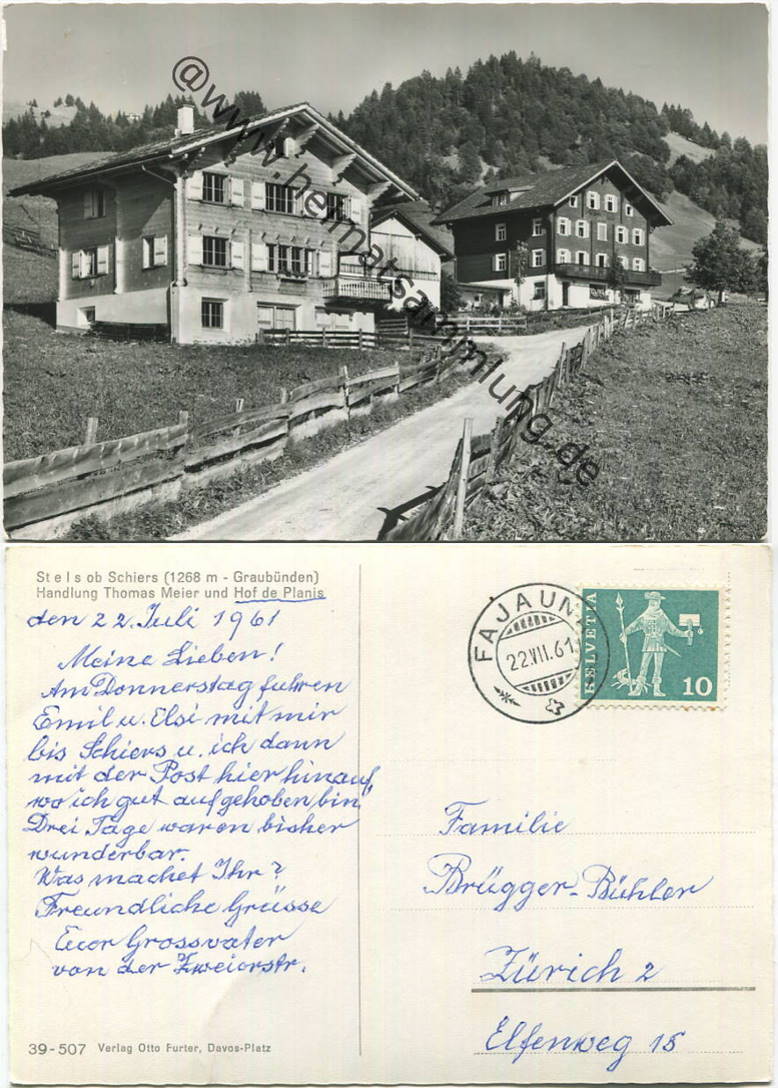 @www.heimatsammlung.de
Stels ob Schiers (1268 m - Graubünden)
Handlung Thomas Meier und Hof de Planis
den 22. Juli 1961
Meine Lieben!
Am Donnerstag fuhren
Emil u. Elsi mit mir
bis Schiers u. ich dann
mit der Post hier hinauf,
wo ich gut aufgehoben bin.
Drei Tage waren bisher
wunderbar.
Was machet Ihr?
Freundliche Grüsse
Euer Grossvater
von der Zweierstr.
39-507 Verlag Otto Furter, Davos-Platz
FAJAUNA
22.VII.61
HELVETIA
10
Familie
Brügger-Bühler
Zürich 2
Elfenweg 15